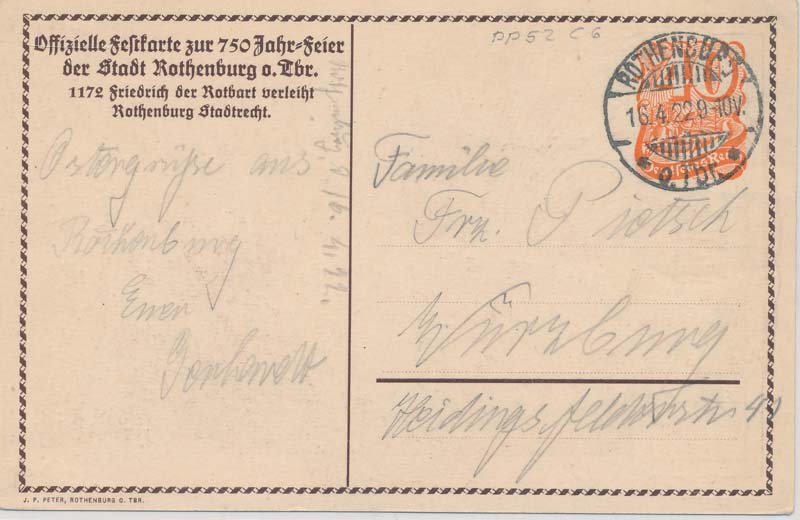 Offizielle Festkarte zur 750 Jahr-Feier
der Stadt Rothenburg o. Tbr.
1172 Friedrich der Rotbart verleiht
Rothenburg Stadtrecht.
PP52 C6
ROTHENBURG
16.4.22.9-10V.
o. Tbr.
40
Ostergrüße aus
Rothenburg
Euer
Familie
Frz.
Würzburg
Heidingsfelderstr
J. P. PETER, ROTHENBURG O. TBR.